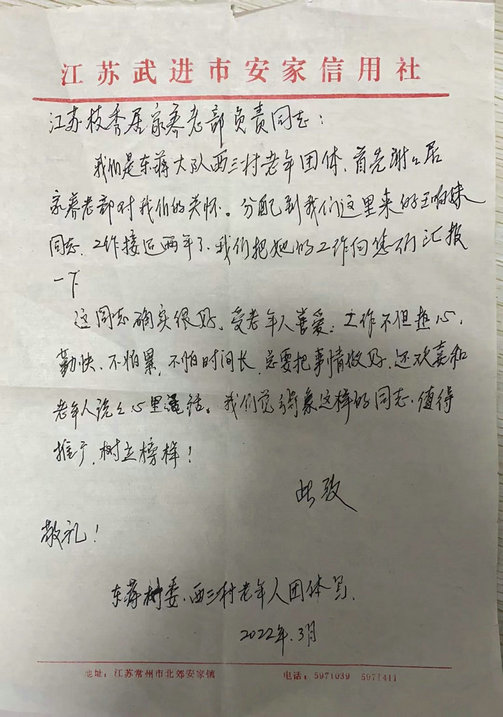 江苏武进市安家信用社
江苏枝秀居家养老部负责同志：
我们是东蒋大队西三村老年团体，首先谢谢居
家养老部对我们的关怀。分配到我们这里来的王响妹
同志，工作接近两年了，我们把她的工作向您们汇报
一下
这同志确实很好，受老年人喜爱，工作不但热心，
勤快、不怕累，不怕时间长，总要把事情做好，还欢喜和
老年人说说心里话。我们觉得象这样的同志，值得
推广，树立榜样！
此致
敬礼！
东蒋村委、西三村老年人团体写、
2022年.3月
地址：江苏常州市北郊安家镇 电话：5971039 5971411